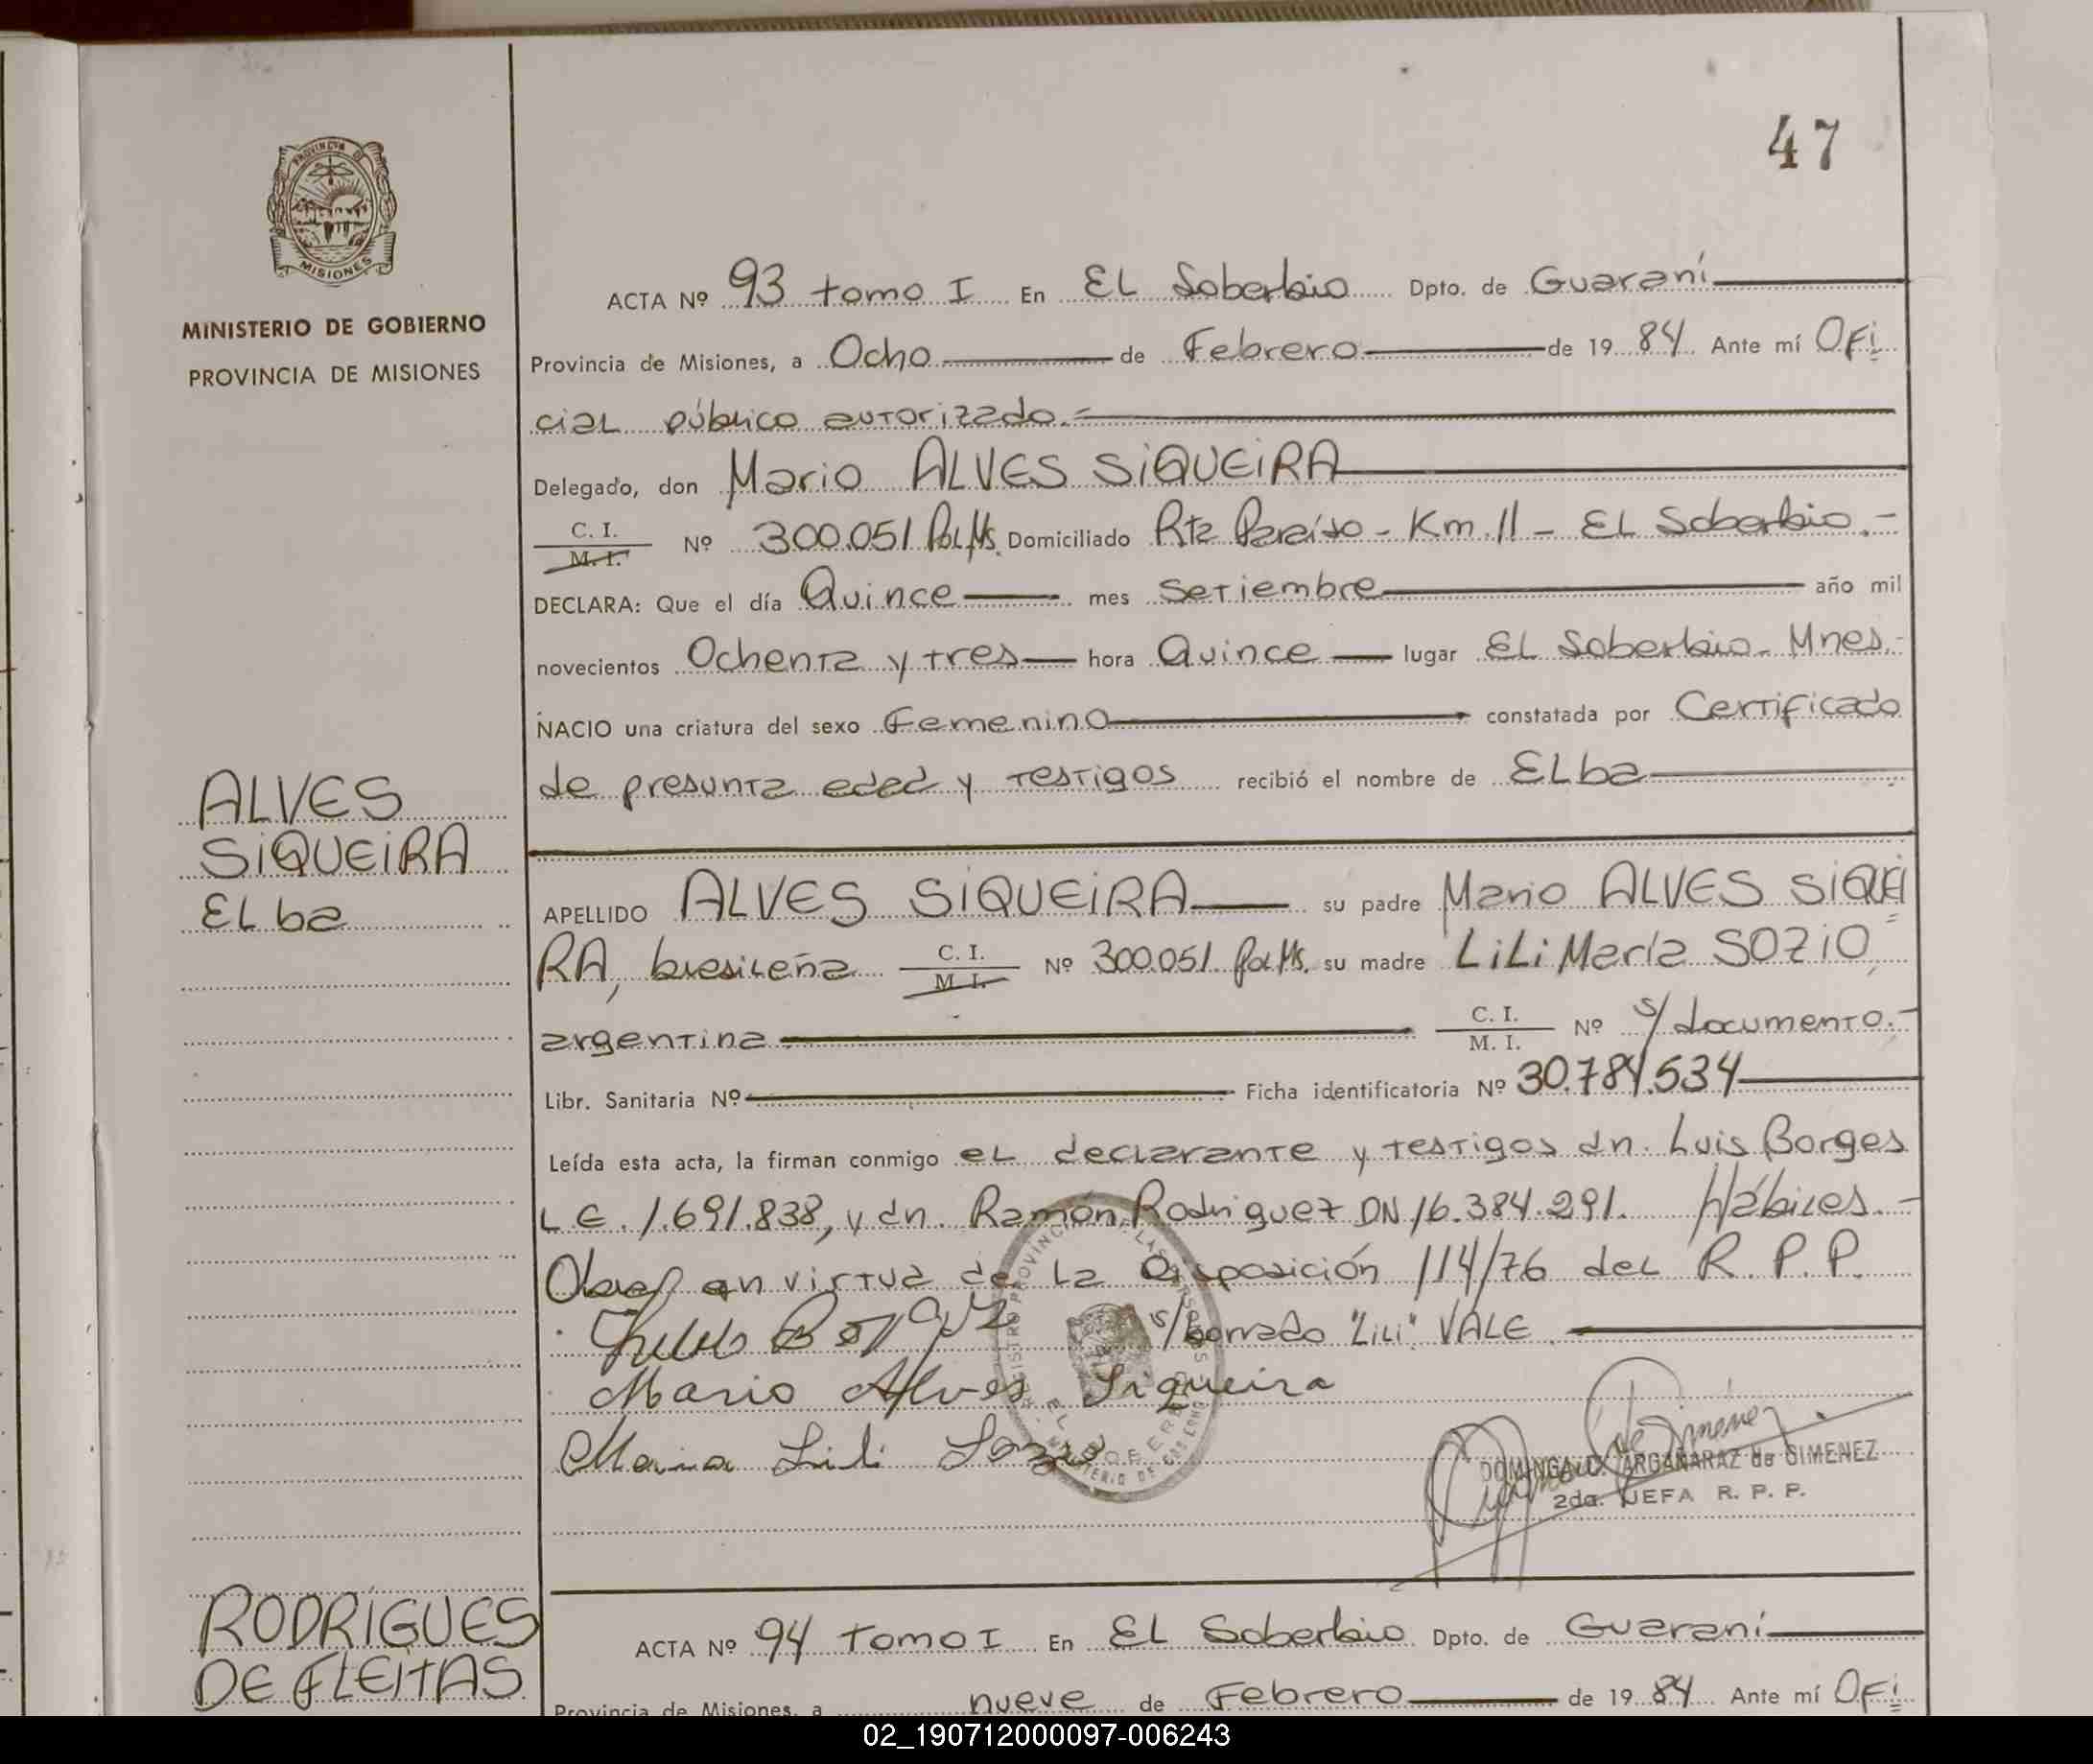 47
PROVINCIA DE
MISIONES
MINISTERIO DE GOBIERNO
PROVINCIA DE MISIONES
ACTA Nº 93 tomo I En EL Soberbio Dpto. de Guaraní
Provincia de Misiones, a Ocho de Febrero de 1984 Ante mí Ofi
cial público autorizado.=
Delegado, don Mario ALVES SIQUEIRA
C. I.
M. I. Nº 300.051 Pol.Ms. Domiciliado Rta Paraíso - Km. 11 - EL Soberbio.-
DECLARA: Que el día Quince mes Setiembre año mil
novecientos Ochenta y tres hora Quince lugar EL Soberbio - Mnes.-
NACIO una criatura del sexo Femenino constatada por Certificado
de presunta edad y testigos recibió el nombre de ELba
ALVES
SIQUEIRA
ELba
APELLIDO ALVES SIQUEIRA su padre Mario ALVES SIQUEI
RA, brasileña C. I. M. I. Nº 300.051 Pol.Ms. su madre LiLi María SOZIO,
argentina C. I. M. I. Nº s/documento.-
Libr. Sanitaria Nº Ficha identificatoria Nº 30.784.534
Leída esta acta, la firman conmigo el declarante y testigos dn. Luis Borges
L E. 1.691.838, y dn. Ramón Rodriguez DN 16.384.291. Hábiles.-
en virtud de la Disposición 114/76 del R. P. P.
s/borrado "Lili" VALE
Mario Alves Siqueira
Maria Lili Sozio
DOMINGA ARGAÑARAZ de GIMENEZ
2da. JEFA R. P. P.
RODRIGUES
DE FLEITAS
ACTA Nº 94 Tomo I En EL Soberbio Dpto. de Guaraní
Provincia de Misiones, a nueve de Febrero de 1984 Ante mí Ofi
02_190712000097-006243